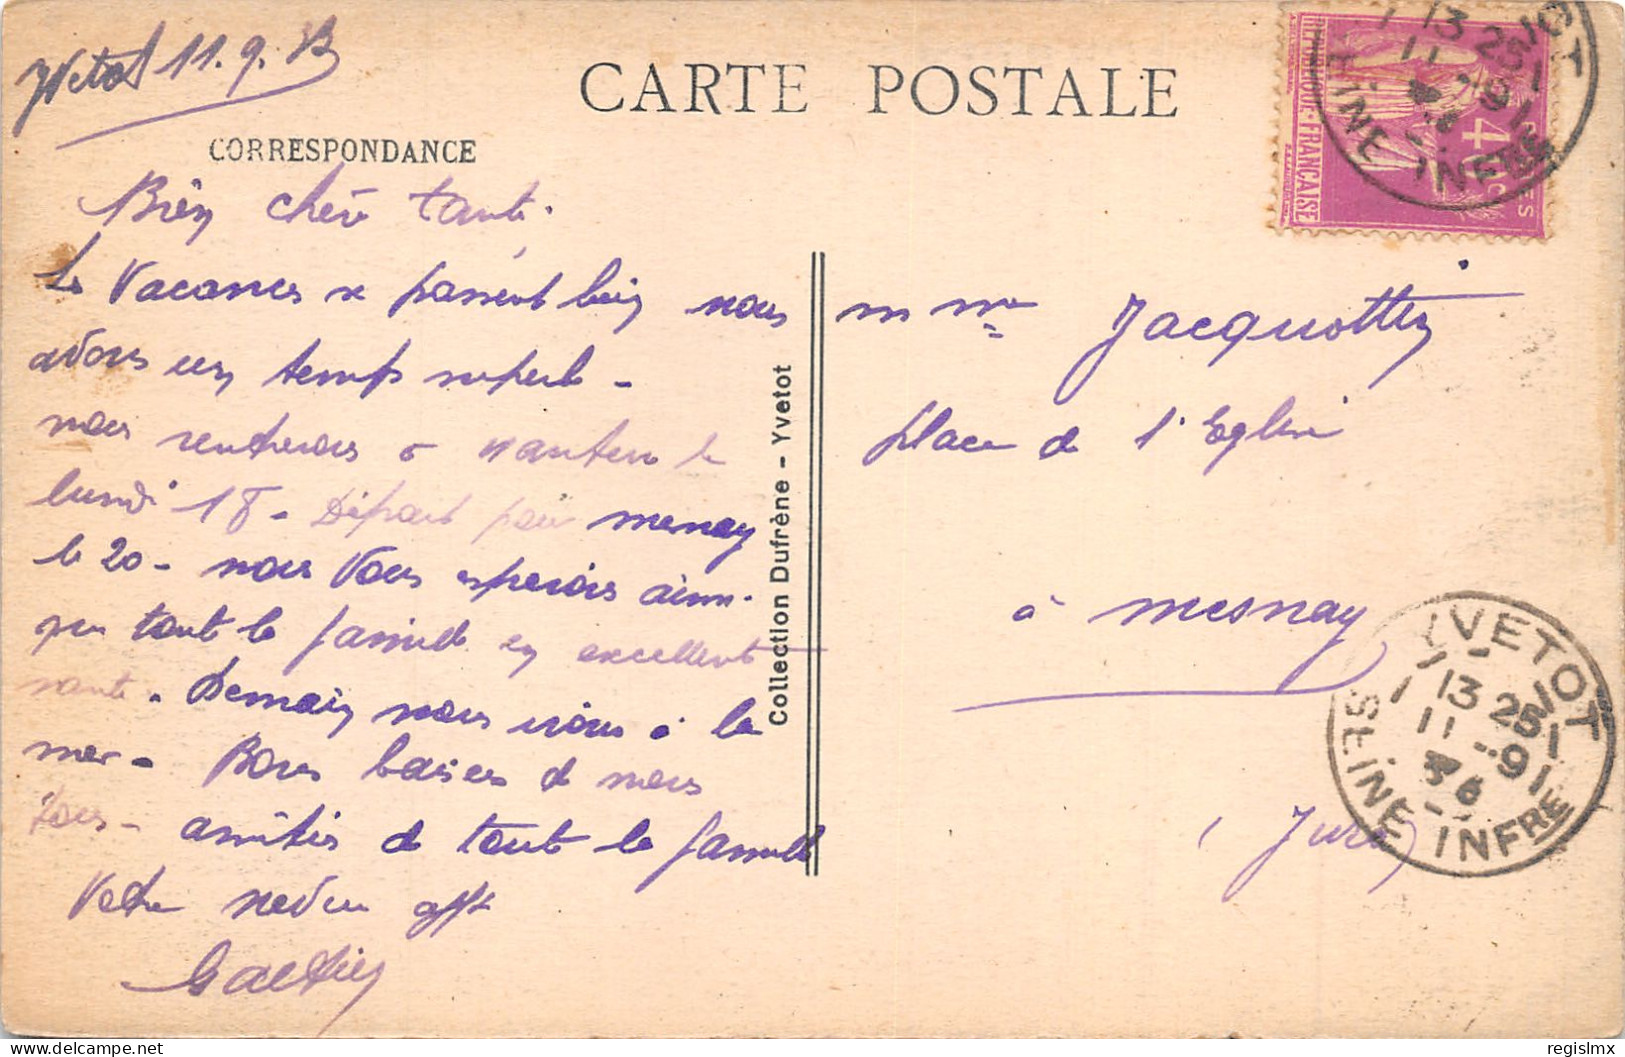 Yvetot 11.9.
CARTE POSTALE
CORRESPONDANCE
Bien chère tante.
les vacances se passent bien nous
avons un temps superbe -
nous rentrerons à Nanterre le
lundi 18 - Départ pour mesnay
le 20 - nous vous espérons ainsi
que toute la famille en excellente
santé. Demain nous irons à la
mer - Bons baisers de nous
tous - amitiés de toute la famille
Votre neveu afft
Gaetan
Collection Dufrène - Yvetot
m me Jacquottin
place de l'Eglise
à mesnay
(Jura)
REPUBLIQUE FRANÇAISE
POSTES
40c
YVETOT
13 25
11 - 9
36
SEINE INFRE
YVETOT
13 25
11 - 9
36
SEINE INFRE
delcampe.net
regislmx